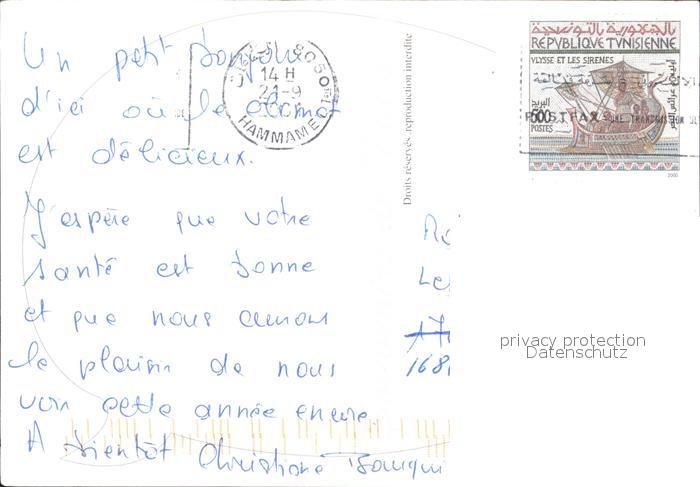 Un petit bonjour
d'ici où le climat
est délicieux.
J'espère que votre
santé est bonne
et que nous aurons
le plaisir de nous
voir cette année encore.
A bientôt Christiane
8050
14 H
21-9
HAMMAMET
Droits réservés .reproduction interdite
بالجمهورية التونسية
REPVBLIQVE TVNISIENNE
VLYSSE ET LES SIRENES
البريد
500
POSTES
POSTFAX
UNE TRANSMISSION
2000
Le
168
privacy protection
Datenschutz